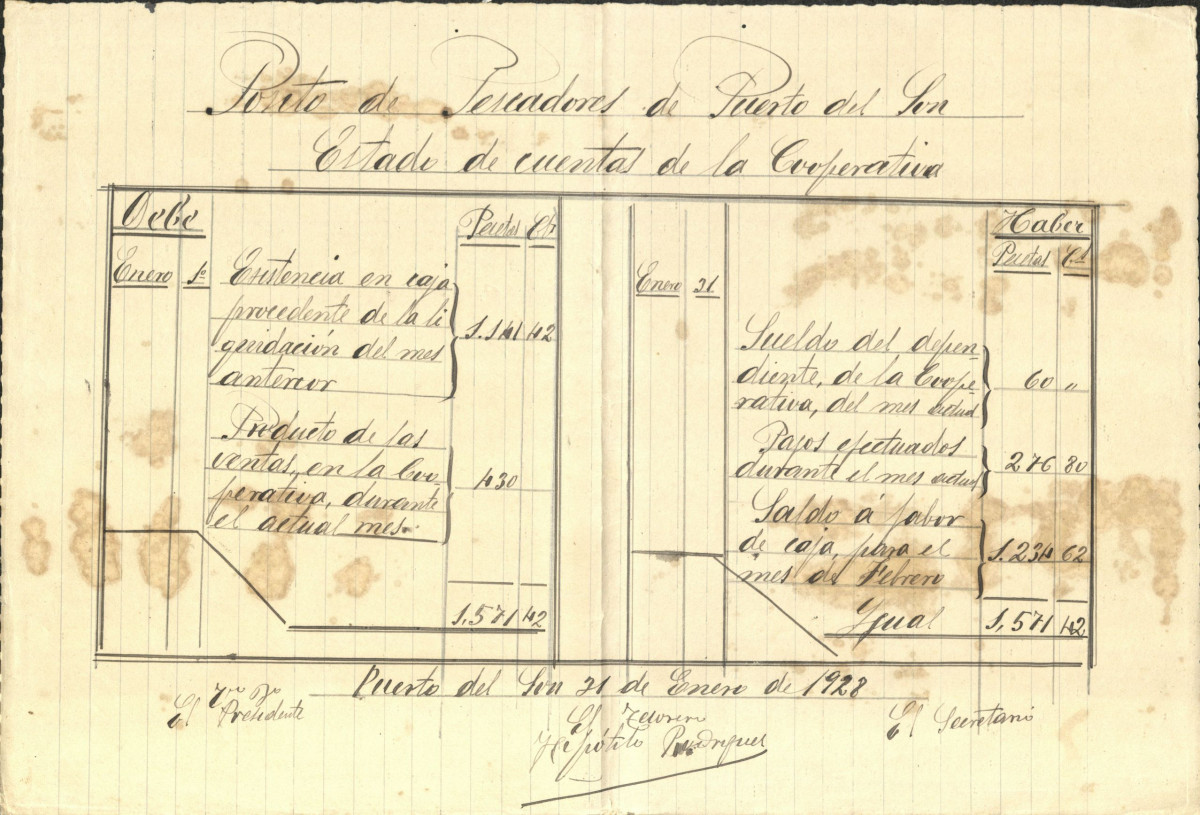 Posito de Pescadores de Puerto del Son
Estado de cuentas de la Cooperativa
Debe
Pesetas Cts
Enero 1º
Existencia en caja
procedente de la li
quidación del mes
anterior
1.141 42
Producto de las
ventas, en la Coo-
perativa, durante
el actual mes.
430
1.571 42
Haber
Pesetas Ct
Enero 31
Sueldo del depen-
diente, de la Coope-
rativa, del mes actual
60 "
Pagos efectuados
durante el mes actual
276 80
Saldo á fabor
de caja, para el
mes de Febrero
1.234 62
Ygual 1,571 42
Puerto del Son 31 de Enero de 1928
Vº Bº
El Presidente
El Tesorero
Hipólito Rodriguez
El Secretario